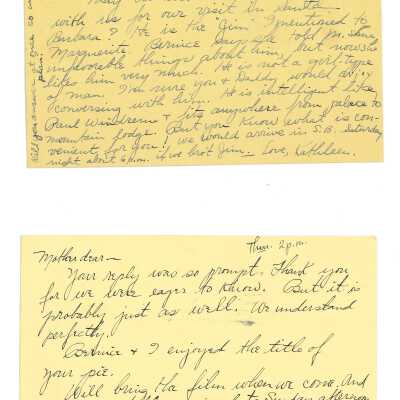 with us for our visit in Santa
Barbara? He is the "Jim" I mentioned to
Marguerite. Bernice says she told M. some
unfavorable things about him, but now she
likes him very much. He is not a girl-type
of man. I'm sure you & Daddy would enjoy
conversing with him. He is intelligent like
Paul & fits anywhere from palace to
mountain lodge. But you know what is con-
venient for you! We would arrive in S.B. Saturday
night about 6 p.m. if we brot Jim. Love, Kathleen.
Will you answer at once so we
plan.
Thur. 2 p.m.
Mother dear—
Your reply was so prompt. Thank you
for we were eager to know. But it is
probably just as well. We understand
perfectly.
Bernice & I enjoyed the title of
your pie.
Will bring the film when we come. And
Sunday afternoon